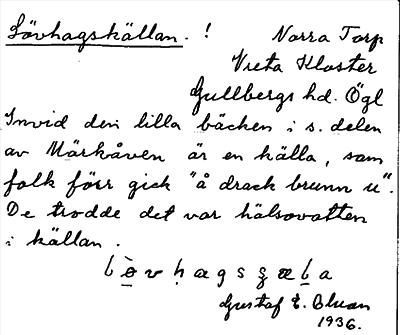 Lövhagskällan. !
Norra Torp
Vreta Kloster
Gullbergs hd. Ögl
Invid den lilla bäcken i s. delen
av Märkåven är en källa, som
folk förr gick "å drack brunn u".
De trodde det var hälsovatten
i källan.
Gustaf E.
1936.